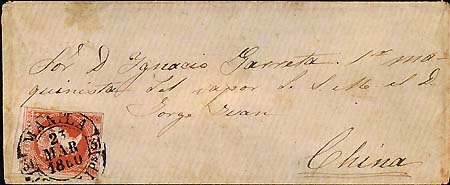 Sor. D Ignacio Garreta. 1er ma-
quinista del vapor de S M el D.
Jorge Juan
China
MANILA
23
MAR
1860